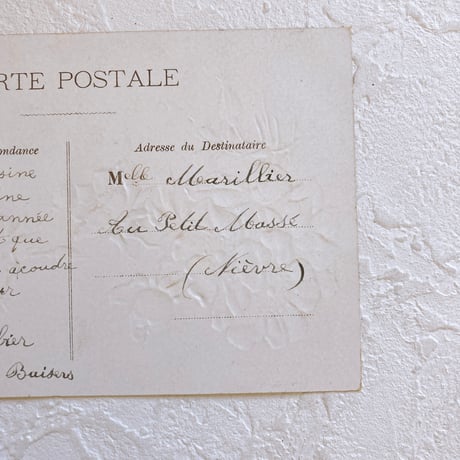 RTE POSTALE
ondance
Adresse du Destinataire
sine
Melle Marillier
ne
année
Au Petit Massé
que
à coudre
(Nièvre)
ur
bier
Baisers